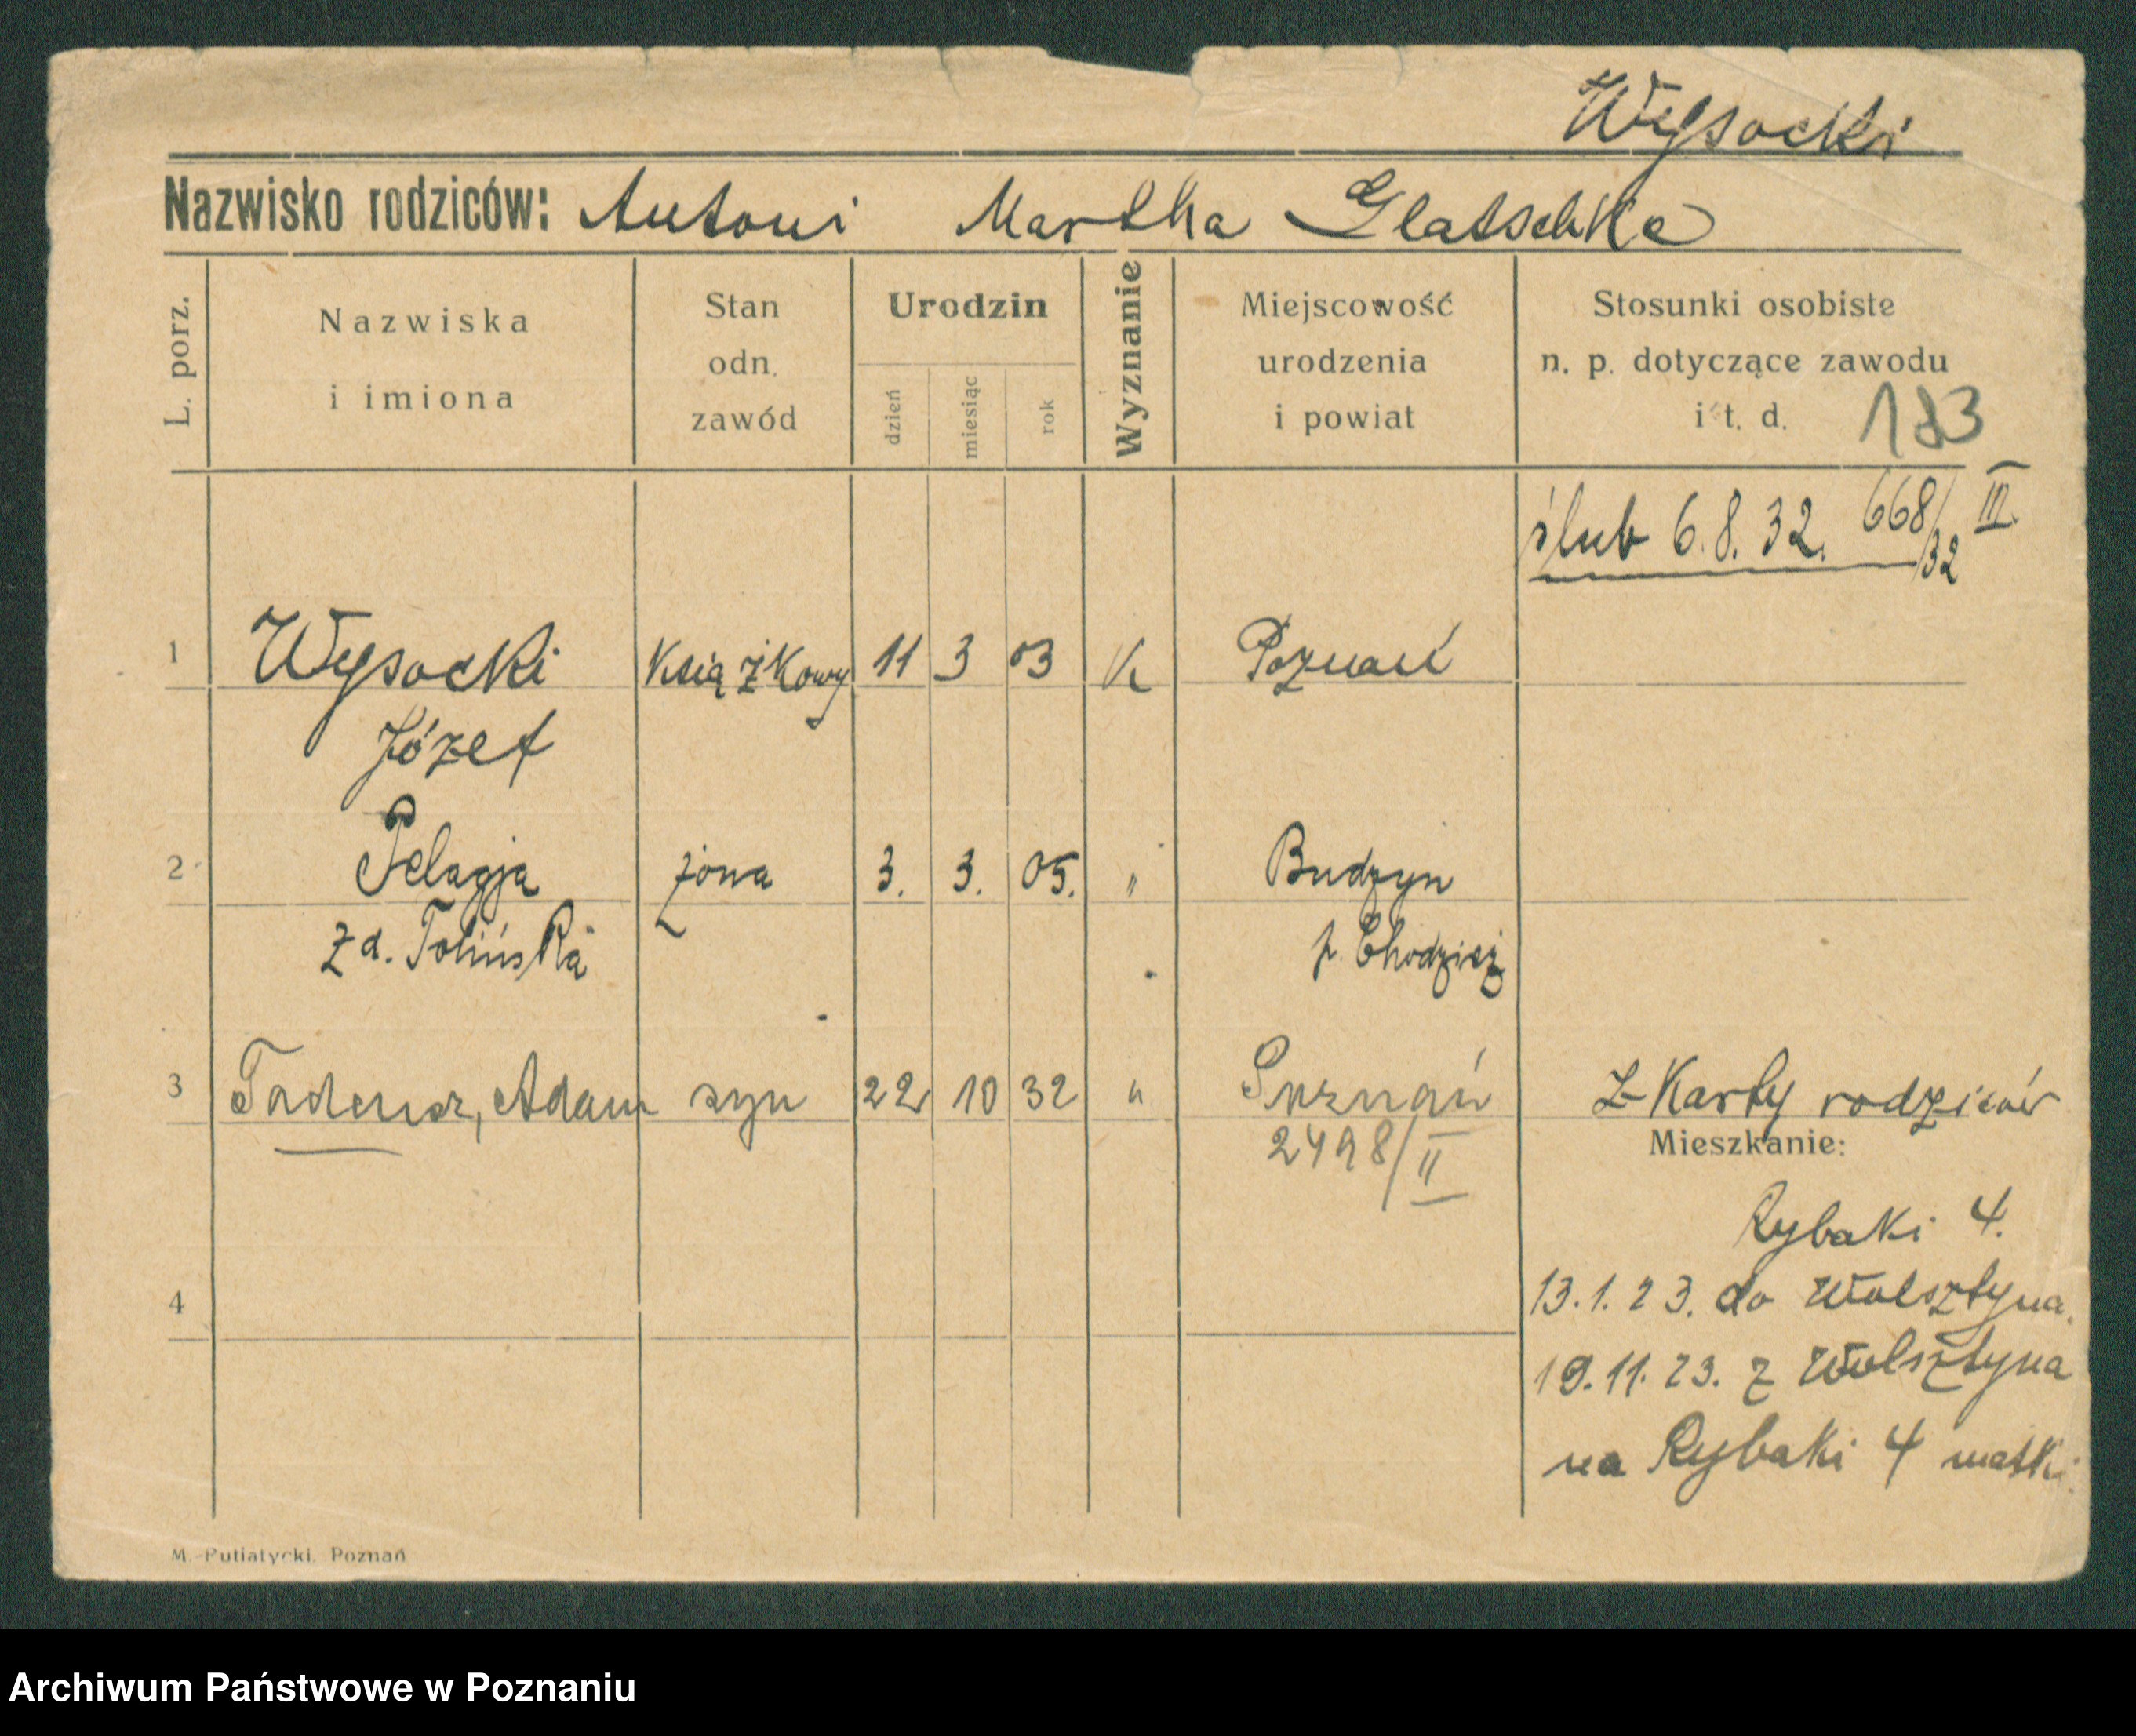 Wysocki
Nazwisko rodziców: Antoni Martha Glatschke
L. porz.
Nazwiska i imiona
Stan odn. zawód
Urodzin
dzień miesiąc rok
Wyznanie
Miejscowość urodzenia i powiat
Stosunki osobiste
n. p. dotyczące zawodu
i t. d. 183
ślub 6.8.32. 668/32 III
1 Wysocki Książkowy 11 3 03 K Poznań
Józef
2 Pelagja żona 3. 3. 05. " Budzyn
z d. Tolińska p. Chodzież
3 Tadeusz, Adam syn 22 10 32 " Poznań Z Karty rodziców
2498/II
Mieszkanie:
Rybaki 4.
4
13.1.23. do Wolsztyna.
19.11.23. z Wolsztyna
na Rybaki 4 matki
M. Putiatycki, Poznań
Archiwum Państwowe w Poznaniu